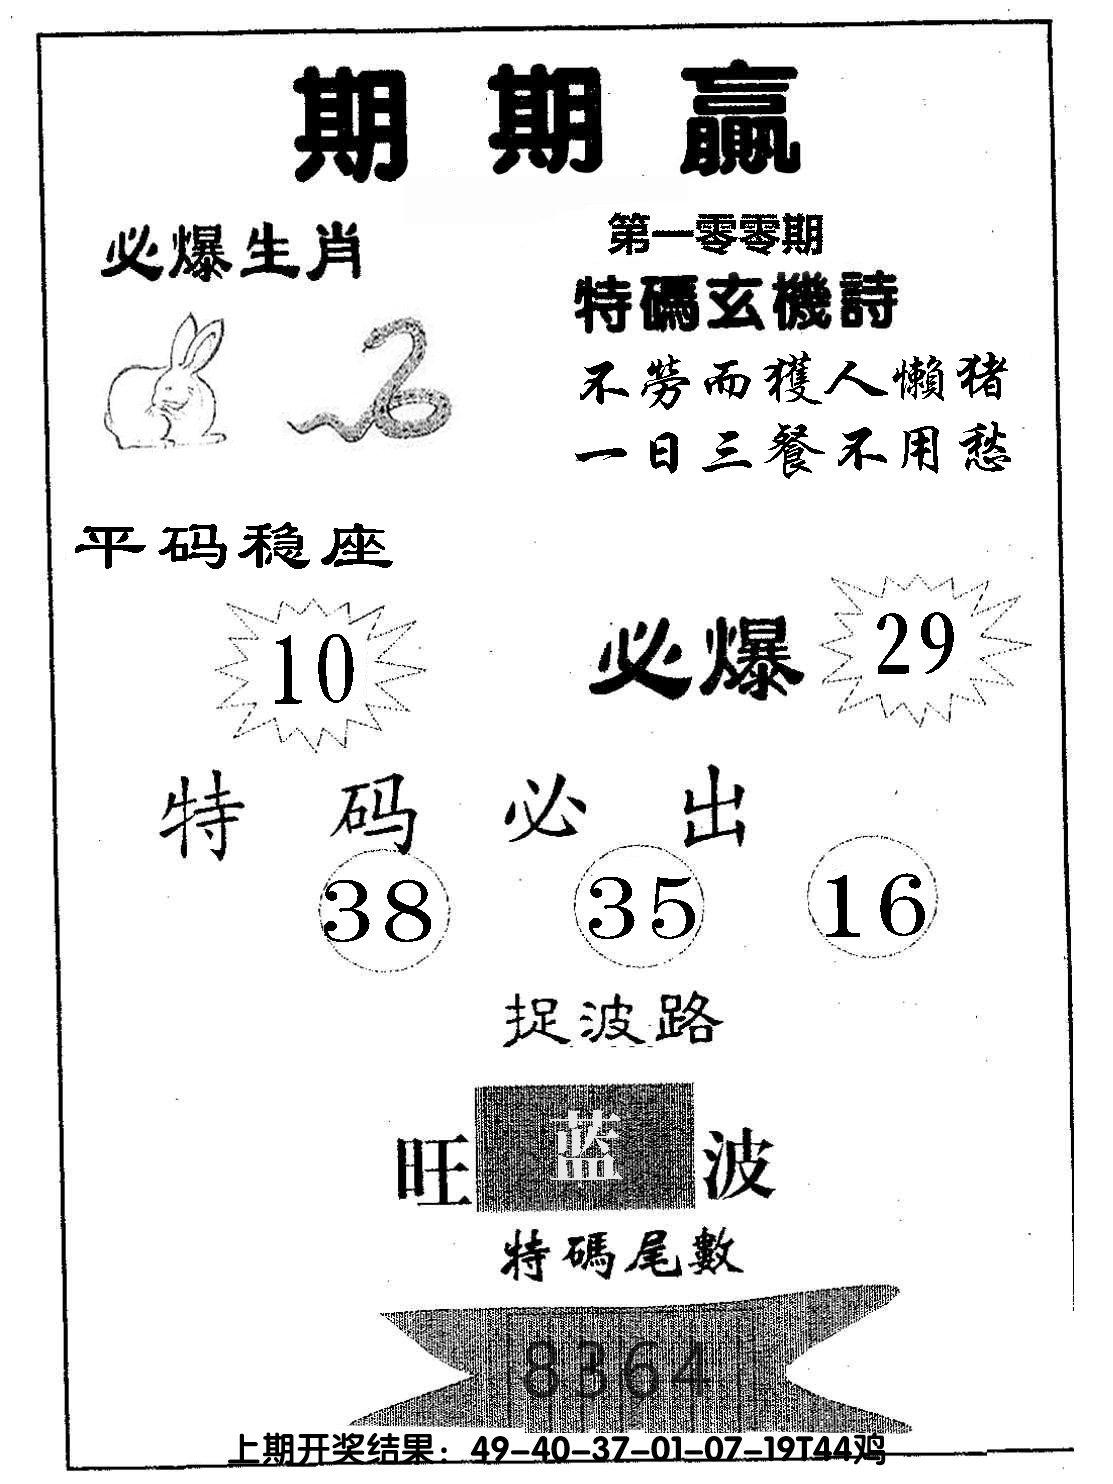 期期贏
必爆生肖
第一零零期
特碼玄機詩
不勞而獲人懶猪
一日三餐不用愁
平码稳座
10
必爆
29
特码必出
38 35 16
捉波路
旺 蓝 波
特碼尾數
8364
上期开奖结果：49-40-37-01-07-19T44鸡